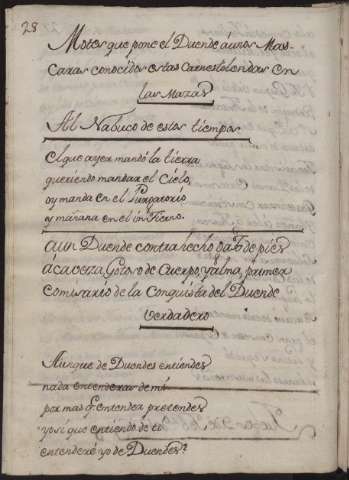 28
Motes que pone el Duende á unos Mas-
caras conocidos estas Carnestolendas en
las Mazas
Al Nabuco de estos tiempos
el que ayer mandó la tierra
queriendo mandar el Cielo,
oy manda en el Purgatorio
y mañana en el infierno.
á un Duende contra hecho de pies
á caveza Gotoso de Cuerpo, y alma, primer
comisario de la Conquista del Duende
verdadero
Aunque de Duendes entiendes
nada entenderas de mi
por mas q.e entender pretendes
yo si que entiendo de ti
entenderé yo de Duendes?